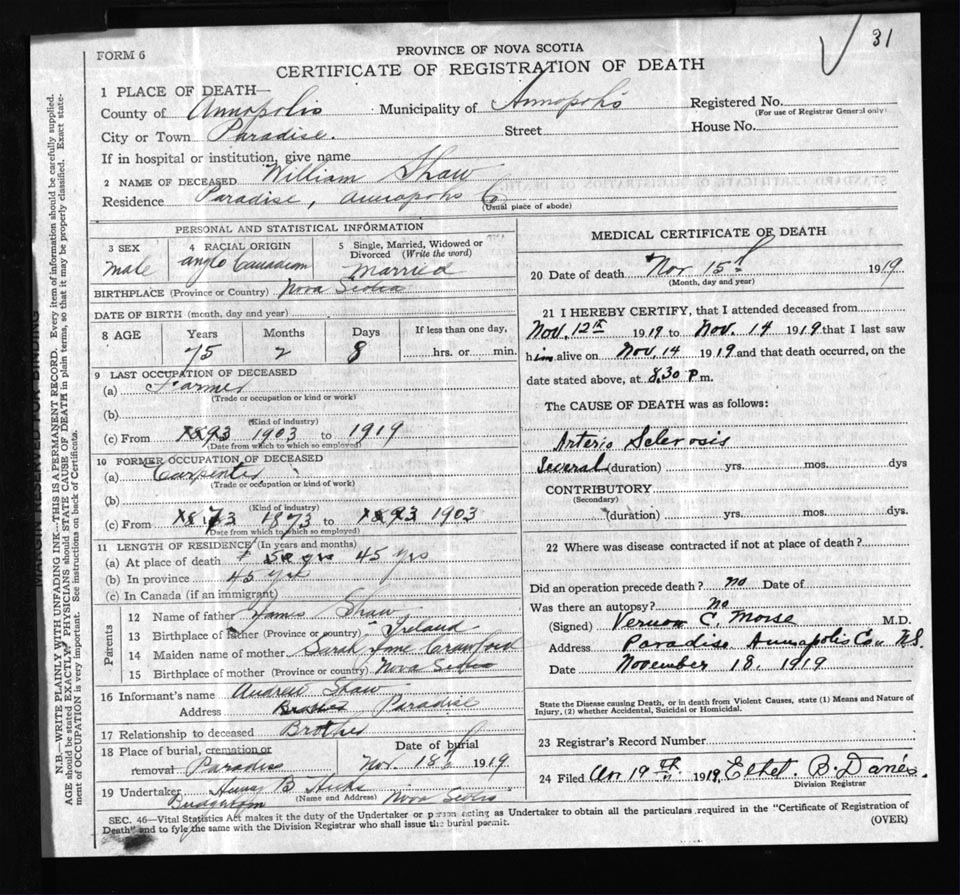 31
FORM 6
PROVINCE OF NOVA SCOTIA
CERTIFICATE OF REGISTRATION OF DEATH
1 PLACE OF DEATH—
County of Annapolis Municipality of Annapolis Registered No.
(For use of Registrar General only)
City or Town Paradise. Street House No.
If in hospital or institution, give name
2 NAME OF DECEASED William Shaw
Residence Paradise, Annapolis Co
(Usual place of abode)
PERSONAL AND STATISTICAL INFORMATION
3 SEX
male
4 RACIAL ORIGIN
Anglo Canadian
5 Single, Married, Widowed or Divorced (Write the word)
Married
BIRTHPLACE (Province or Country) Nova Scotia
DATE OF BIRTH (month, day and year)
8 AGE Years Months Days If less than one day,
75 2 8 hrs. or min.
9 LAST OCCUPATION OF DECEASED
(a) Farmer
(Trade or occupation or kind or work)
(b)
(Kind of industry)
(c) From 1903 to 1919
(Date from which to which so employed)
10 FORMER OCCUPATION OF DECEASED
(a) Carpenter
(Trade or occupation or kind of work)
(b)
(Kind of industry)
(c) From 1873 to 1903
(Date from which to which so employed)
11 LENGTH OF RESIDENCE (In years and months)
(a) At place of death 45 yrs
(b) In province 45 yrs
(c) In Canada (if an immigrant)
Parents
12 Name of father James Shaw
13 Birthplace of father (Province or country) Ireland
14 Maiden name of mother Sarah Jane Crawford
15 Birthplace of mother (Province or country) Nova Scotia
16 Informant's name Andrew Shaw
Address Brother Paradise
17 Relationship to deceased Brother
18 Place of burial, cremation or removal Paradise
Date of burial Nov. 18th 1919
19 Undertaker Henry B Hicks
(Name and Address)
Bridgetown Nova Scotia
MEDICAL CERTIFICATE OF DEATH
20 Date of death Nov 15th 1919
(Month, day and year)
21 I HEREBY CERTIFY, that I attended deceased from
Nov. 12th 1919 to Nov. 14 1919 that I last saw
him alive on Nov. 14 1919 and that death occurred, on the
date stated above, at 8.30 p.m.
The CAUSE OF DEATH was as follows:
Arterio Sclerosis
Several (duration) yrs. mos. dys
CONTRIBUTORY
(Secondary)
(duration) yrs. mos. dys.
22 Where was disease contracted if not at place of death?
Did an operation precede death? no Date of
Was there an autopsy? no
(Signed) Vernon C. Morse M.D.
Address Paradise Annapolis Co. N.S.
Date November 18. 1919
State the Disease causing Death, or in death from Violent Causes, state (1) Means and Nature of
Injury, (2) whether Accidental, Suicidal or Homicidal.
23 Registrar's Record Number
24 Filed 19th 1919 B.
Division Registrar
SEC. 46—Vital Statistics Act makes it the duty of the Undertaker or person acting as Undertaker to obtain all the particulars required in the "Certificate of Registration of
Death" and to fyle the same with the Division Registrar who shall issue the burial permit.
(OVER)
MARGIN RESERVED FOR BINDING
N.B.—WRITE PLAINLY WITH UNFADING INK—THIS IS A PERMANENT RECORD. Every item of information should be carefully supplied.
AGE should be stated EXACTLY. PHYSICIANS should STATE CAUSE OF DEATH in plain terms, so that it may be properly classified. Exact state-
ment of OCCUPATION is very important. See instructions on back of Certificate.